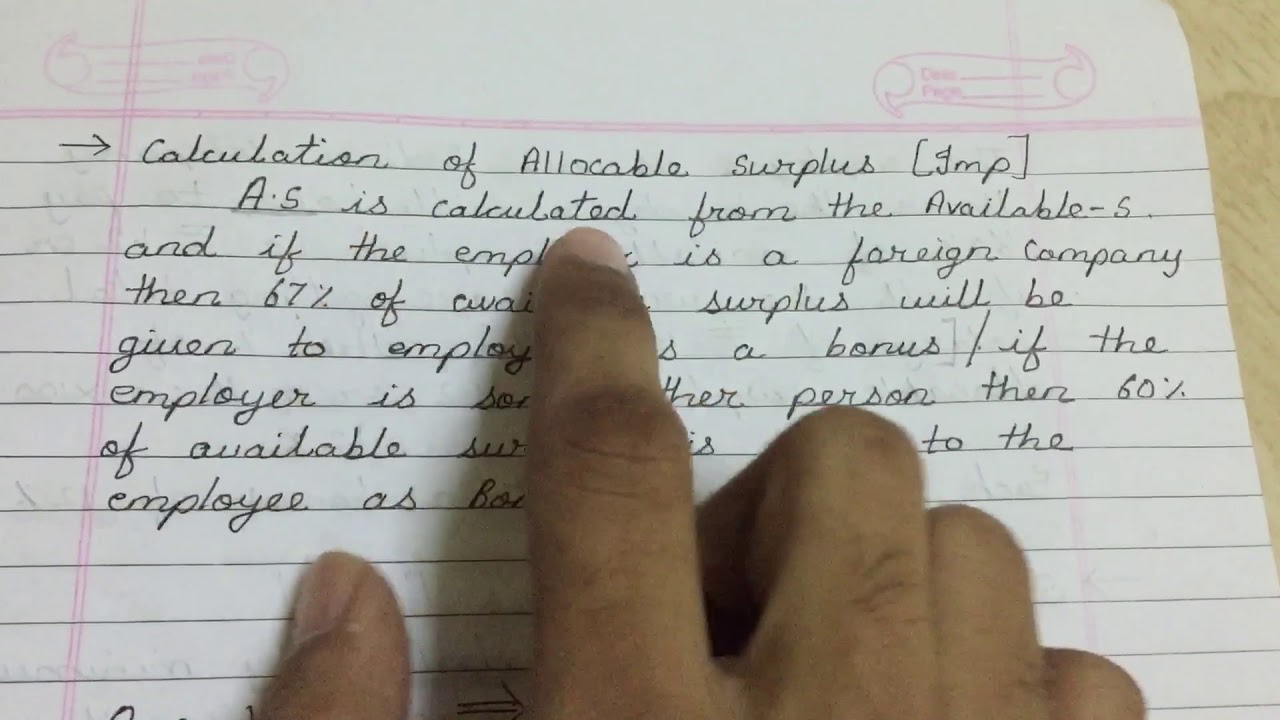 Date
Page
→ Calculation of Allocable Surplus [Imp]
A.S is calculated from the Available-S.
and if the is a foreign Company
then 67% of surplus will be
given to a bonus / if the
employer is person then 60%
of available is to the
employee as
⇒